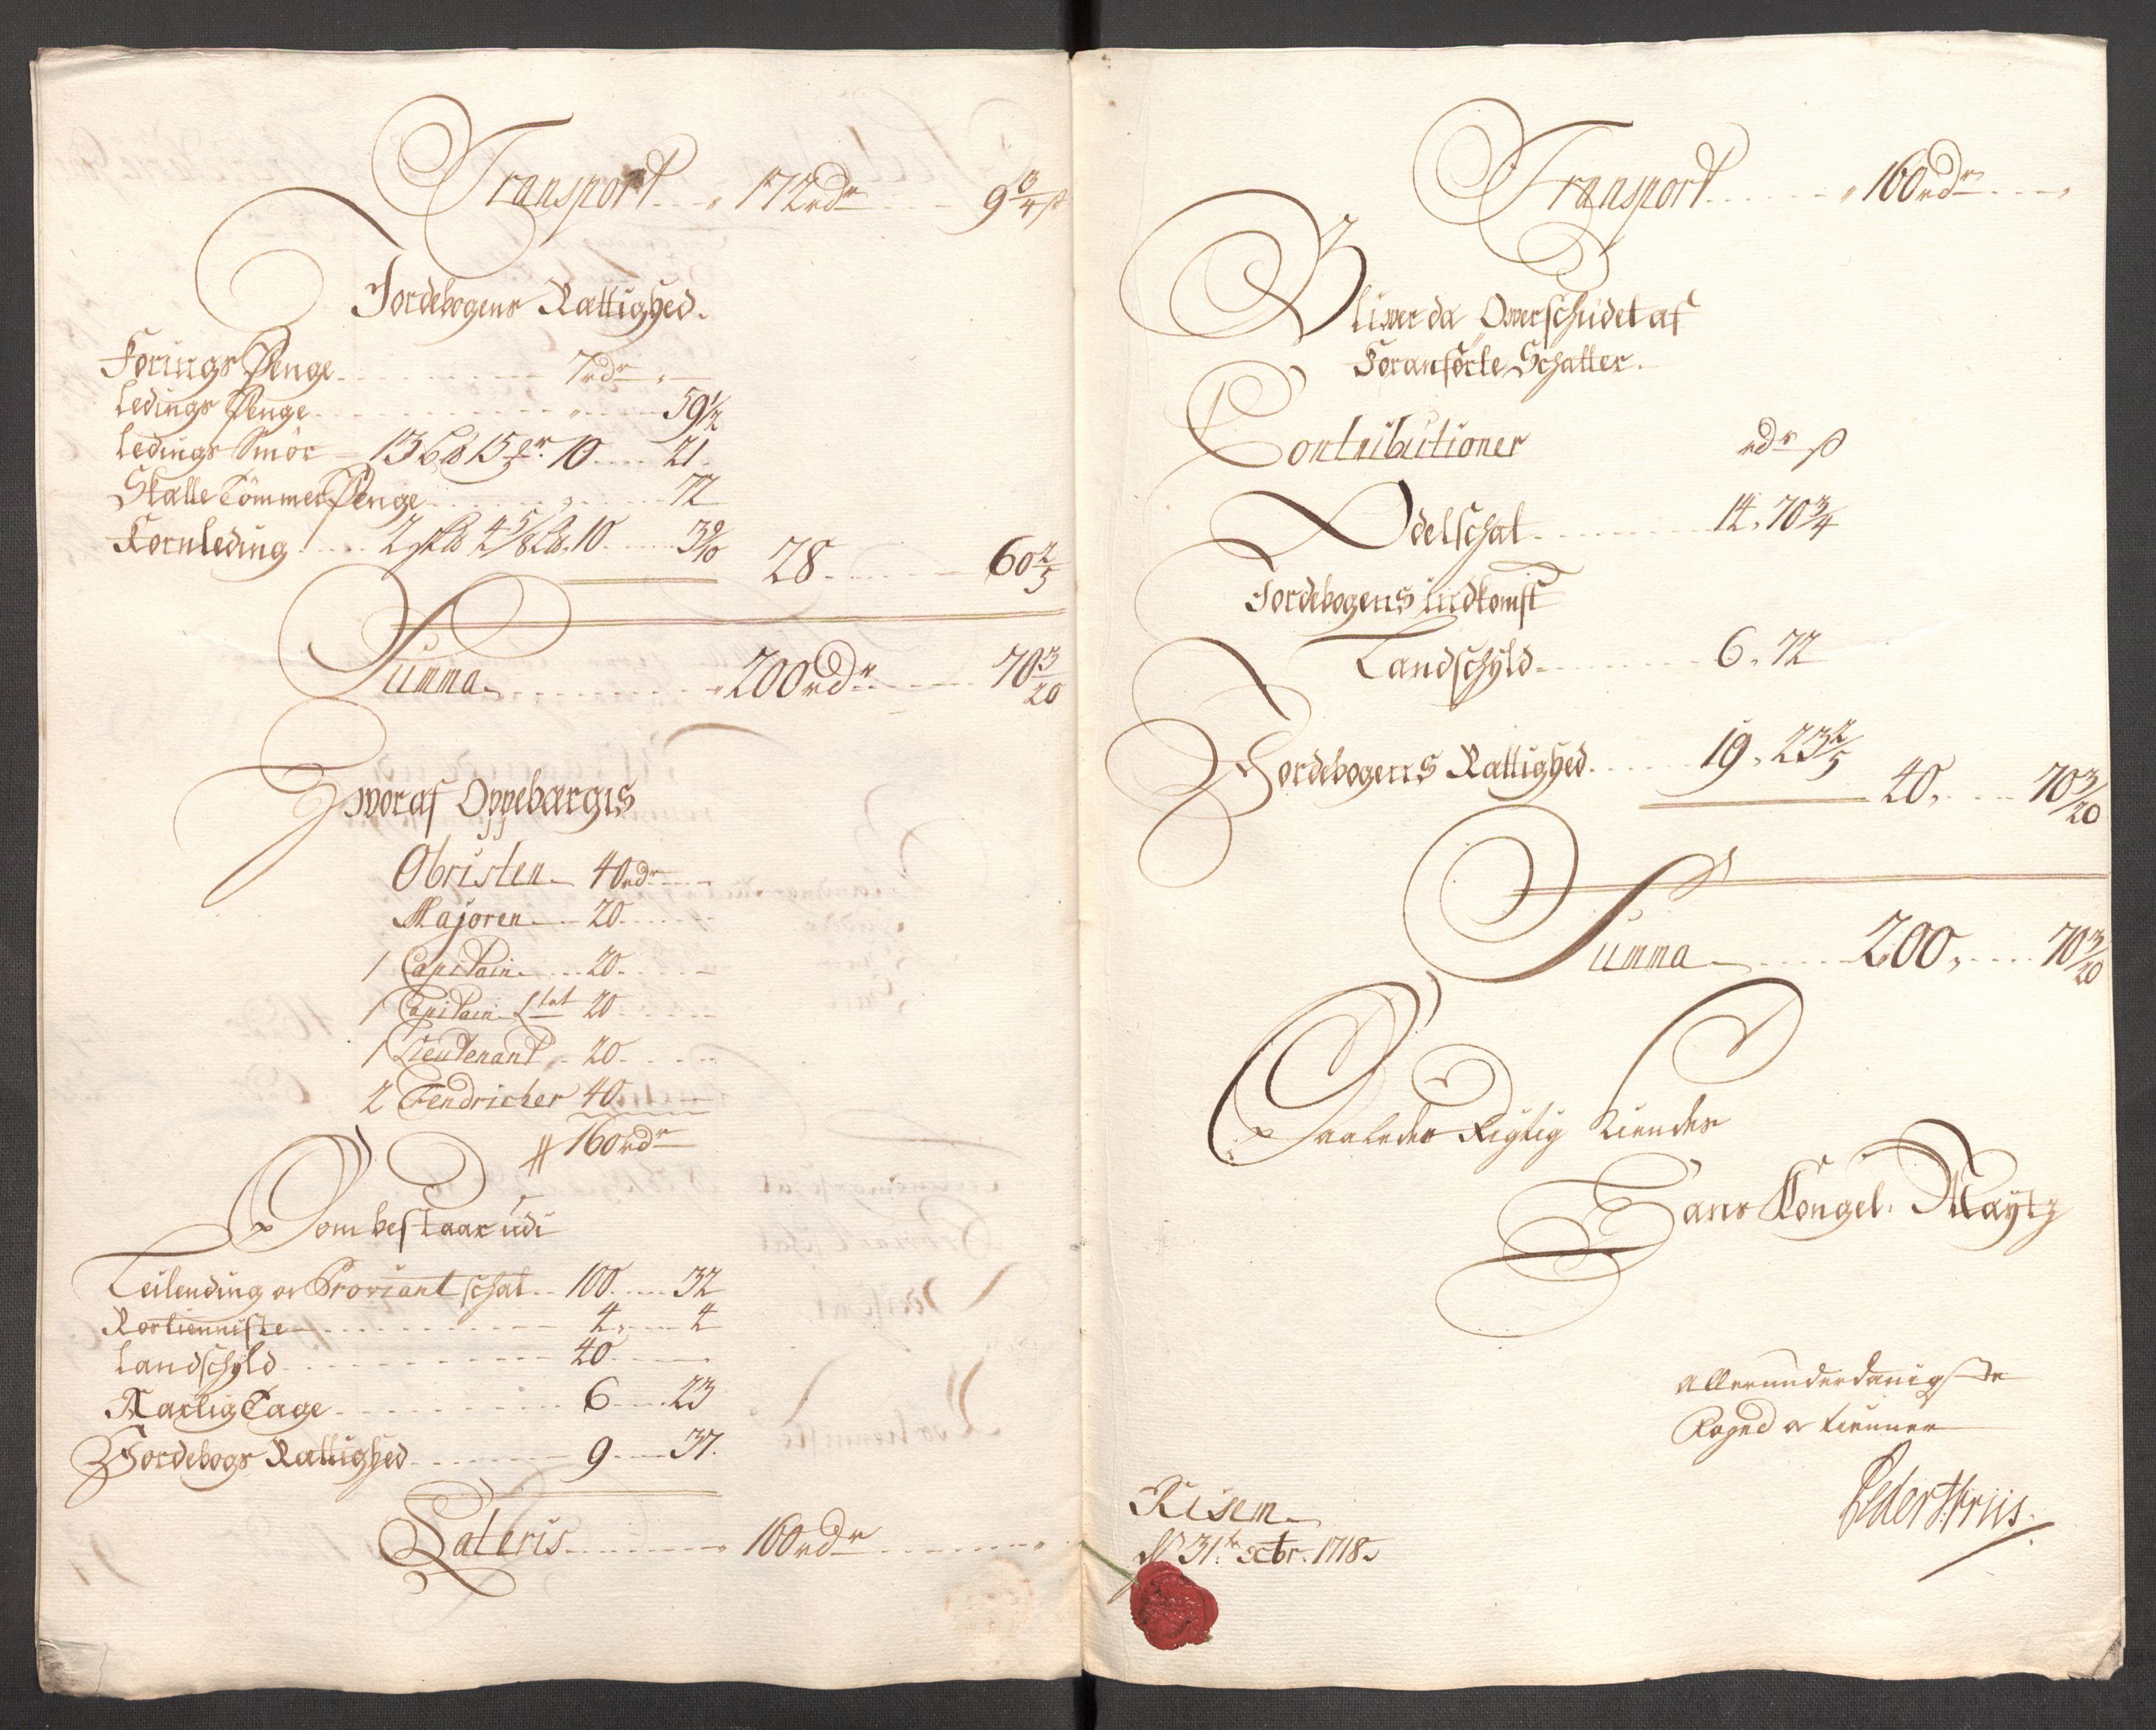 Transport 172 rdr 9 3/4 ß
Jordebogens Rættighed.
Forings Penge 7 rdr
Ledings Penge 59 1/2
Ledings Smör 13 10 21
Skatte Tömmer Penge 72
Kornleding 2 4 5/8 10 3 9/10 28 60 2/5
Summa 200 rdr 70 3/20
Hvoraf Oppebærgis
Obristen 40 rdr
Majoren 20
1 Capitain 20
1 Capitain Ltnt 20
1 Lieutenant 20
2 Fendricher 40
160 rdr
Som bestaar udi
Leilending og Proviant schat 100 32
Rostienniste 4 4
Landschyld 40
Aarlig Tage 6 23
Jordebogs Rættighed 9 37
Lateris 160 rdr
Transport 160 rdr
Bliver da Overschudet af
Foranförte Schatter.
Contributioner rdr ß
Odelschat 14 70 3/4
Jordebogens Indkomst
Landschyld 6 72
Jordebogens Rættighed 19 23 2/5 40 70 3/20
Summa 200 70 3/20
Saaledes Rigtig Kiendes
Hans Kongel. Maytz
Allerunderdanigste
Foged og tienner
Peder Friis.
Risem
d 31te Octbr. 1718